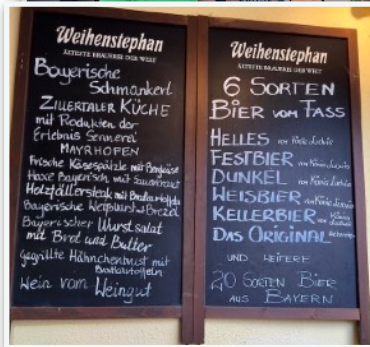 Weihenstephan
ÄLTESTE BRAUEREI DER WELT
Bayerische
Schmankerl
ZILLERTALER KÜCHE
mit Produkten der
Erlebnis Sennerei
MAYRHOFEN
Frische Käsespätzle mit Bergkäse
Haxe Bayerisch mit Sauerkraut
Holzfällersteak mit Bratkartoffeln
Bayerische Weißwurst Brezel
Bayerischer Wurstsalat
mit Brot und Butter
gegrillte Hähnchenbrust mit
Bratkartoffeln
Wein vom Weingut
Weihenstephan
ÄLTESTE BRAUEREI DER WELT
6 SORTEN
BIER VOM FASS
HELLES von König Ludwig
FESTBIER von König Ludwig
DUNKEL von König Ludwig
WEISBIER von König Ludwig
KELLERBIER von König Ludwig
DAS ORIGINAL
UND WEITERE
20 SORTEN BIER
AUS BAYERN